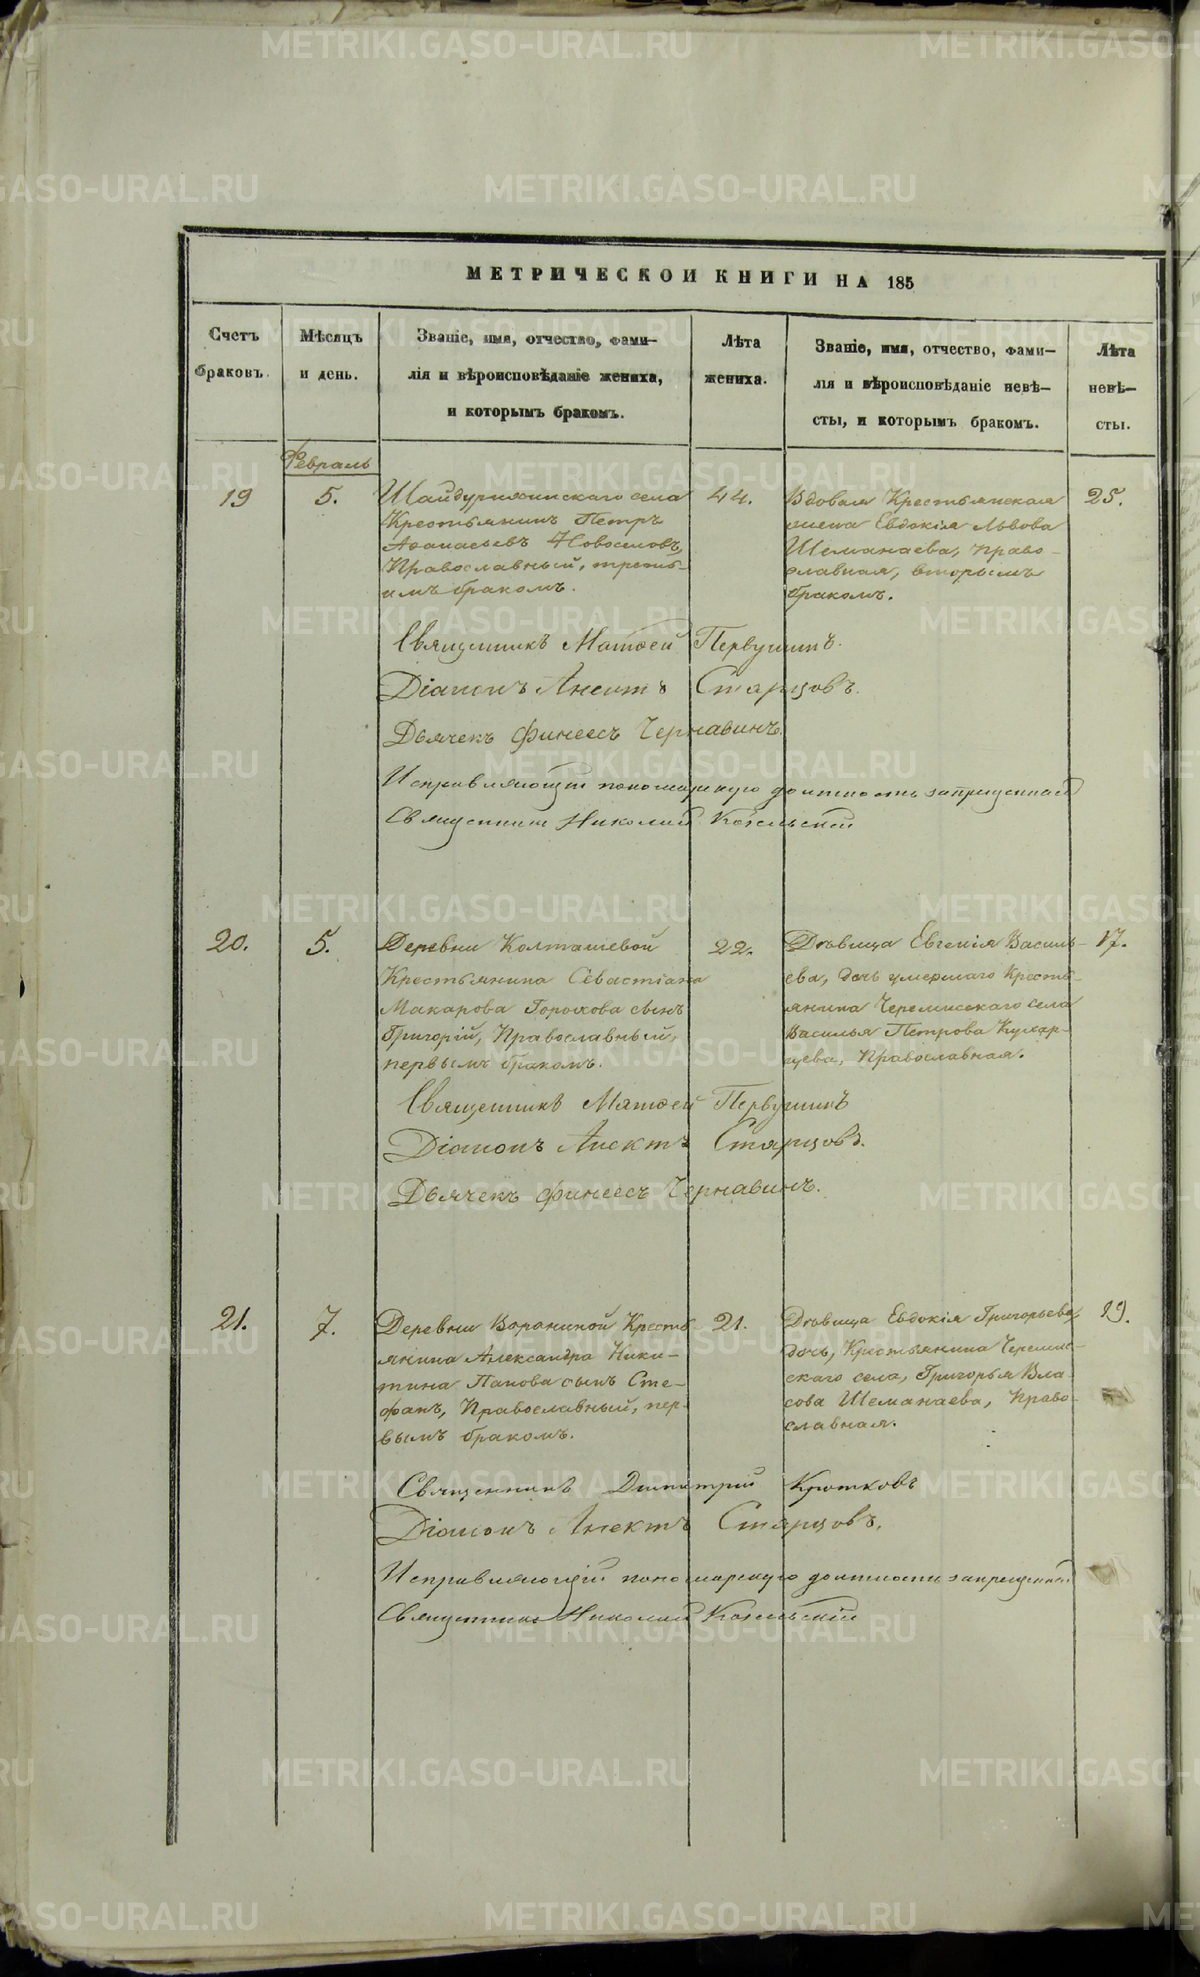 МЕТРИЧЕСКОЙ КНИГИ НА 185
Счетъ браковъ.
Мѣсяцъ и день.
Званіе, имя, отчество, фами-
лія и вѣроисповѣданіе жениха,
и которымъ бракомъ.
Лѣта жениха.
Званіе, имя, отчество, фами-
лія и вѣроисповѣданіе невѣ-
сты, и которымъ бракомъ.
Лѣта невѣ-
сты.
Февраль
19
5.
Шайдурихинскаго села
Крестьянинъ Петръ
Аѳанасьевъ Новоселовъ,
Православный, треть-
имъ бракомъ.
44.
Вдовая Крестьянская
жена Евдокія Львова
Шеманаева, Право-
славная, вторымъ
бракомъ.
25.
Священникъ Матѳей Первушинъ.
Діаконъ Анектъ Старцовъ.
Дьячекъ Финеесъ Чернавинъ.
Исправляющій пономарскую должность запрещенный
Священникъ Николай Козельскій
20.
5.
Деревни Колташевой
Крестьянина Севастіана
Макарова Горохова сынъ
Григорій, Православный,
первымъ бракомъ.
22.
Дѣвица Евгенія Василь-
ева, дочь умершаго Кресть-
янина Черемисскаго села
Василья Петрова Кухар-
цева, Православная.
17.
Священникъ Матѳей Первушинъ
Діаконъ Анектъ Старцовъ.
Дьячекъ Финеесъ Чернавинъ.
21.
7.
Деревни Ворониной Кресть-
янина Александра Ники-
тина Панова сынъ Сте-
фанъ, Православный, пер-
вымъ бракомъ.
21.
Дѣвица Евдокія Григорьева,
дочь, Крестьянина Черемис-
скаго села, Григорья Вла-
сова Шеманаева, Право-
славная.
19.
Священникъ Димитрій Кротковъ
Діаконъ Анектъ Старцовъ.
Исправляющій пономарскую должность запрещенный
Священникъ Николай Козельскій
METRIKI.GASO-URAL.RU